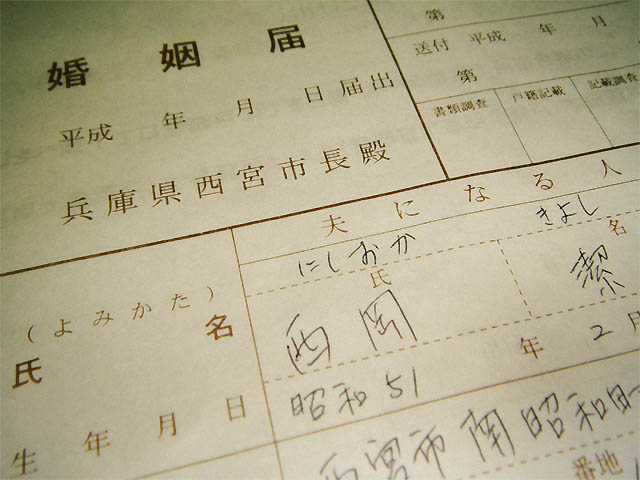 婚姻届
平成 年 月 日届出
兵庫県西宮市長殿
第
送付 平成 年 月
第
書類調査 戸籍記載 記載調査
夫になる人
(よみかた) にしおか きよし
氏名 氏 名
西岡 潔
生年月日 昭和51年2月
西宮市南昭和
番地